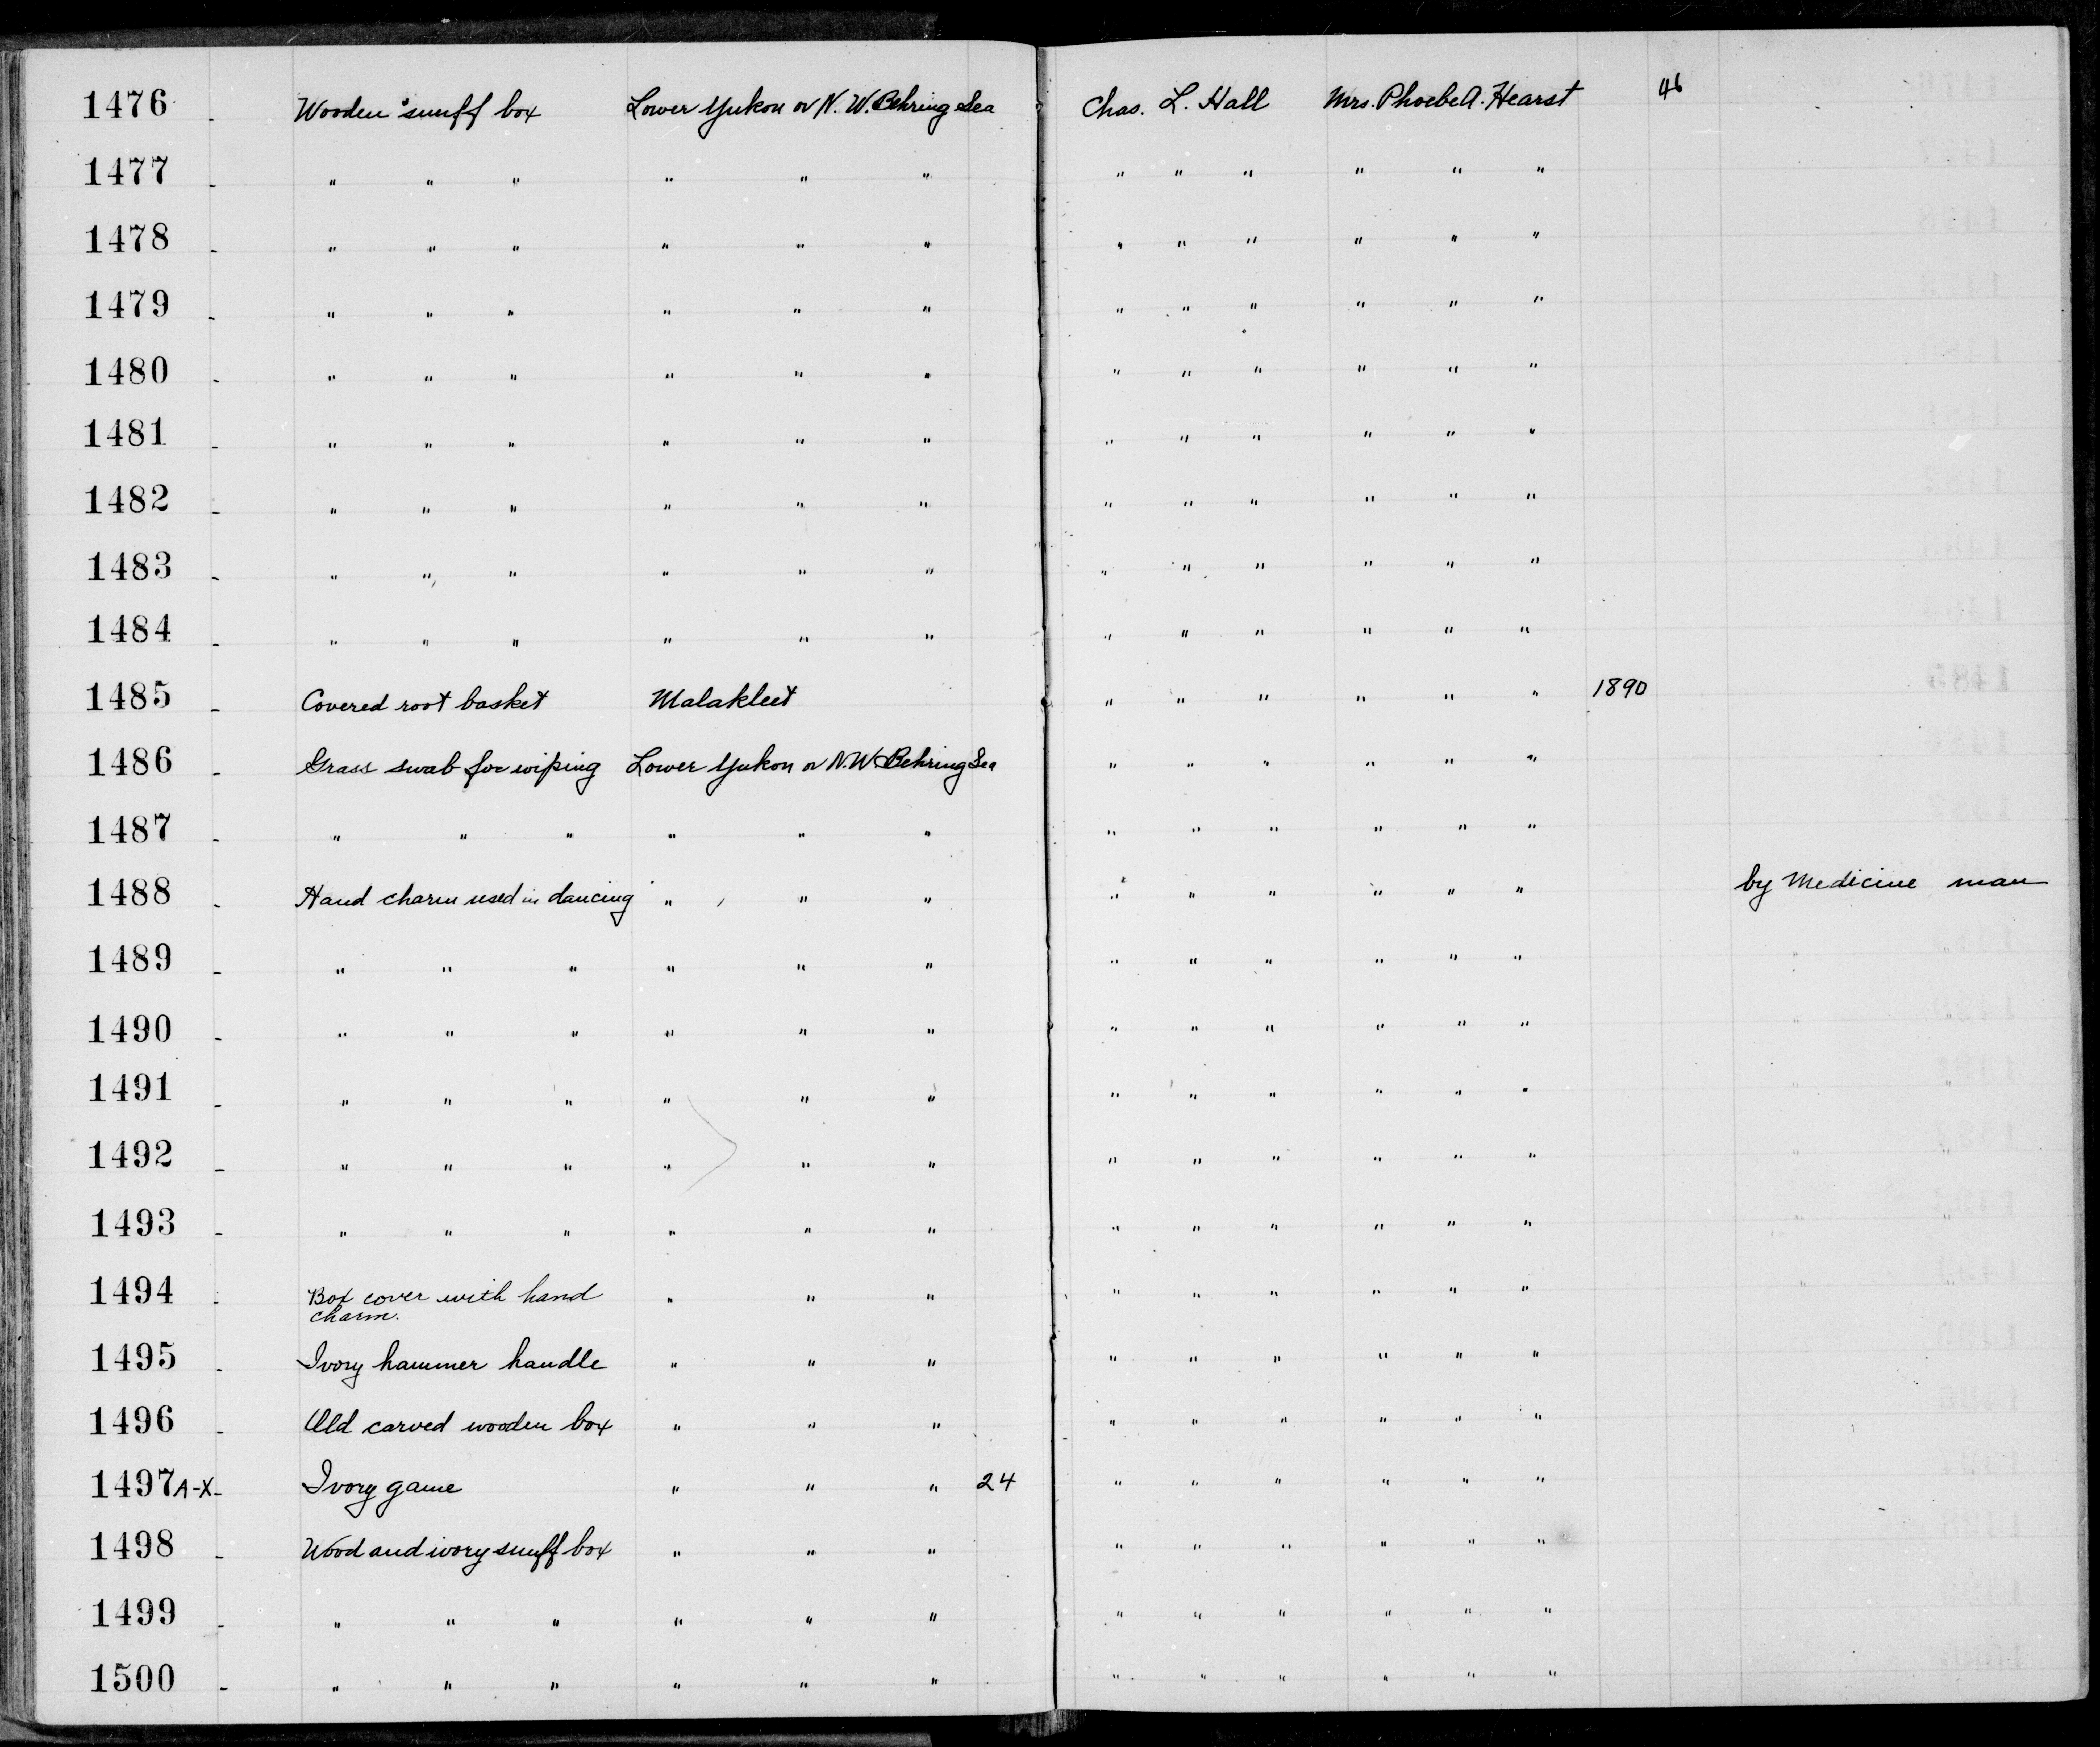 1476 - Wooden snuff box Lower Yukon or N. W. Behring Sea Chas. L. Hall Mrs. Phoebe A. Hearst 46
1477 - " " " " " " " " " " " "
1478 - " " " " " " " " " " " "
1479 - " " " " " " " " " " " "
1480 - " " " " " " " " " " " "
1481 - " " " " " " " " " " " "
1482 - " " " " " " " " " " " "
1483 - " " " " " " " " " " " "
1484 - " " " " " " " " " " " "
1485 - Covered root basket Malakleet " " " " " " 1890
1486 - Grass swab for wiping Lower Yukon or N. W. Behring Sea " " " " " "
1487 - " " " " " " " " " " " "
1488 - Hand charm used in dancing " " " " " " " " " by Medicine man
1489 - " " " " " " " " " " " " " "
1490 - " " " " " " " " " " " " " "
1491 - " " " " " " " " " " " " " "
1492 - " " " " " " " " " " " " " "
1493 - " " " " " " " " " " " " " "
1494 - Box cover with hand " " " " " " " " " "
charm.
1495 - Ivory hammer handle " " " " " " " " "
1496 - Old carved wooden box " " " " " " " " "
1497 A-X - Ivory game " " " 24 " " " " " "
1498 - Wood and ivory snuff box " " " " " " " " "
1499 - " " " " " " " " " " " "
1500 - " " " " " " " " " " " "